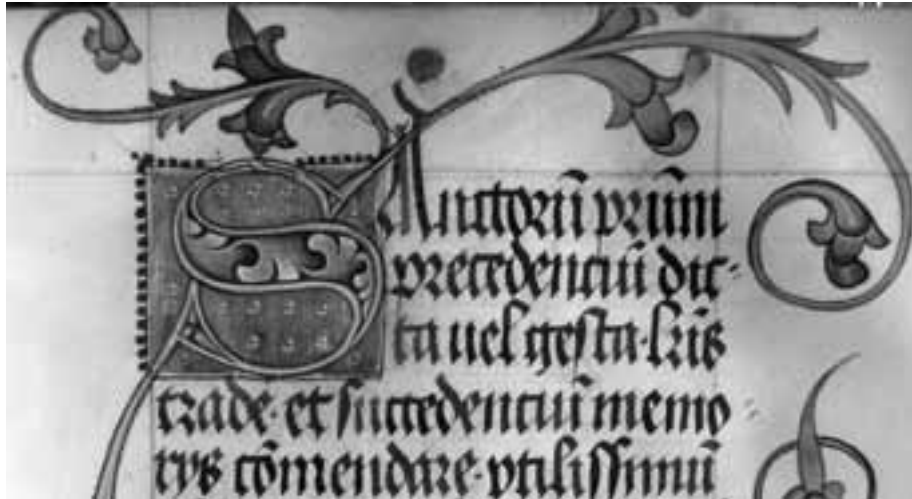 SAnctorũ pr̃um
precedenciũ dic-
ta uel gesta·lr̃is
trade·et succedenciũ memo
rys cõmendare·vtilissimũ